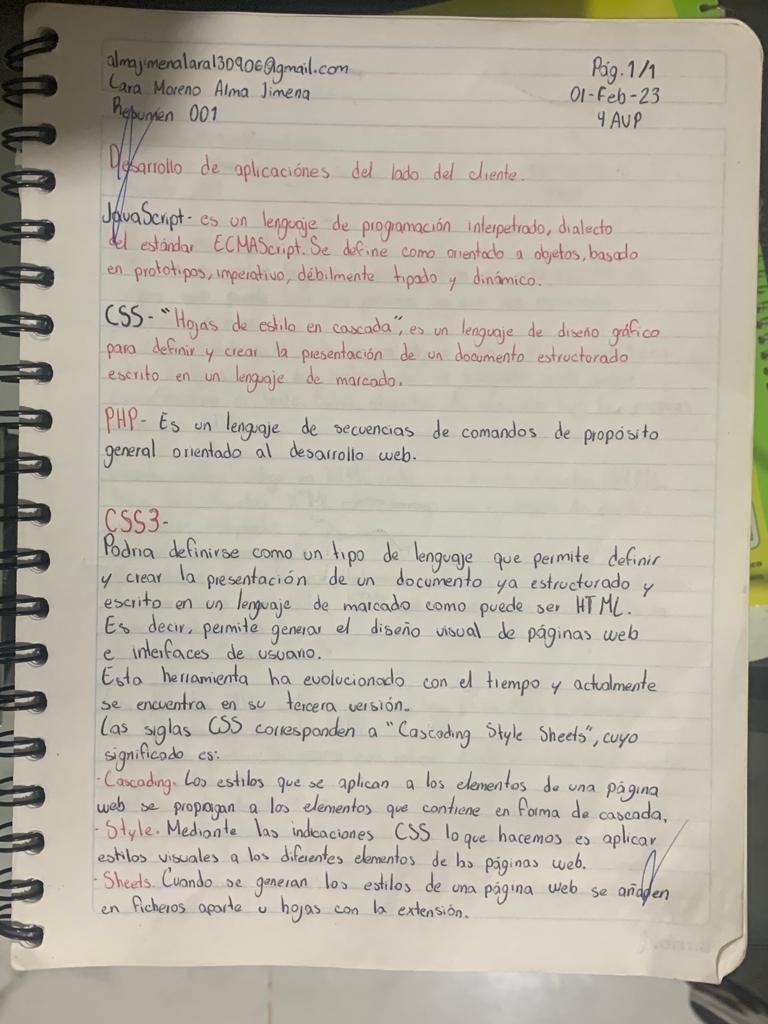 almajimenalara130906@gmail.com
Lara Moreno Alma Jimena
Resumen 001
Pág. 1/1
01-Feb-23
4 AVP
Desarrollo de aplicaciónes del lado del cliente.
JavaScript- es un lenguaje de programación interpetrado, dialecto
del estándar ECMAScript. Se define como orientado a objetos, basado
en prototipos, imperativo, débilmente tipado y dinámico.
CSS- "Hojas de estilo en cascada", es un lenguaje de diseño gráfico
para definir y crear la presentación de un documento estructorado
escrito en un lenguaje de marcado.
PHP- Es un lenguaje de secuencias de comandos de propósito
general orientado al desarrollo web.
CSS3-
Podria definirse como un tipo de lenguaje que permite definir
y crear la presentación de un documento ya estructurado y
escrito en un lenguaje de marcado como puede ser HTML.
Es decir, permite generar el diseño visual de páginas web
e interfaces de usuario.
Esta herramienta ha evolucionado con el tiempo y actualmente
se encuentra en su tercera versión.
Las siglas CSS corresponden a "Cascading Style Sheets", cuyo
significado es:
·Cascading. Los estilos que se aplican a los elementos de una página
web se propagan a los elementos que contiene en forma de cascada.
·Style. Mediante las indicaciones CSS lo que hacemos es aplicar
estilos visuales a los diferentes elementos de las páginas web.
·Sheets. Cuando se generan los estilos de una página web se añaden
en ficheros aparte u hojas con la extensión.